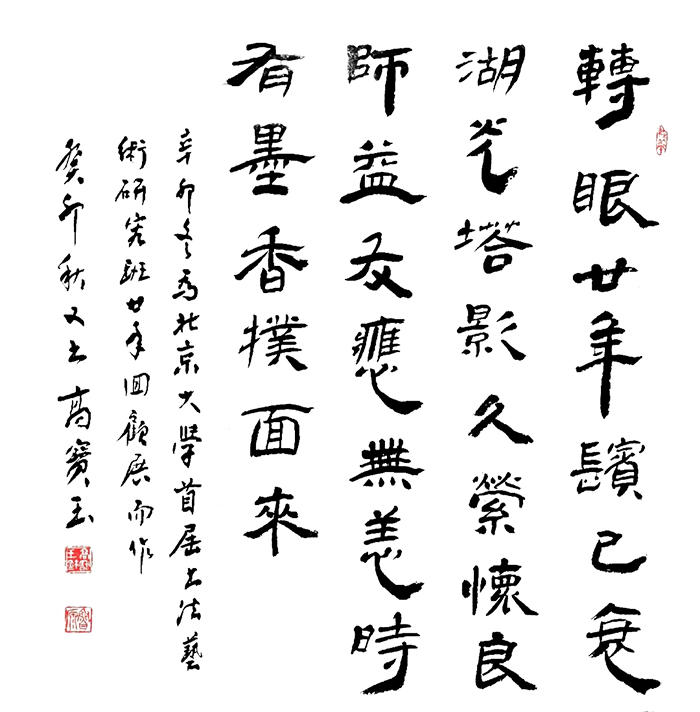 轉眼廿年鬢已衰
湖光塔影久縈懷良
師益友應無恙時
有墨香撲面來
辛卯冬為北京大學首屆書法藝
術研究班廿年回顧展而作
癸卯秋又書高寶玉